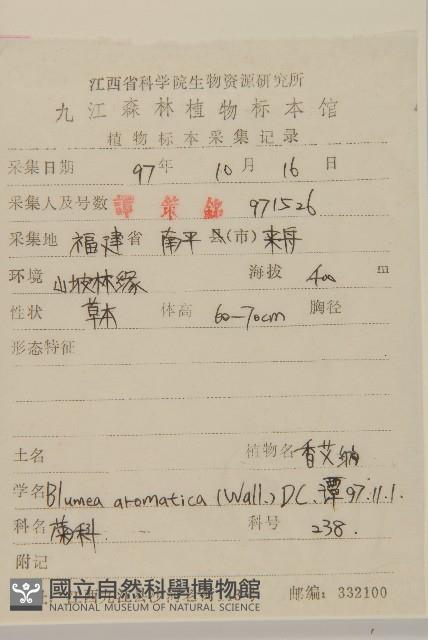 江西省科学院生物资源研究所
九江森林植物标本馆
植物标本采集记录
采集日期 97年 10月 16日
采集人及号数 譚策銘 971526
采集地 福建省 南平县(市) 来舟
环境 山坡林缘 海拔 400 m
性状 草本 体高 60—70cm 胸径
形态特征
土名 植物名 香艾纳
学名 Blumea aromatica (Wall.) DC. 谭97.11.1.
科名 菊科 科号 238.
附记
邮编: 332100
國立自然科學博物館
NATIONAL MUSEUM OF NATURAL SCIENCE